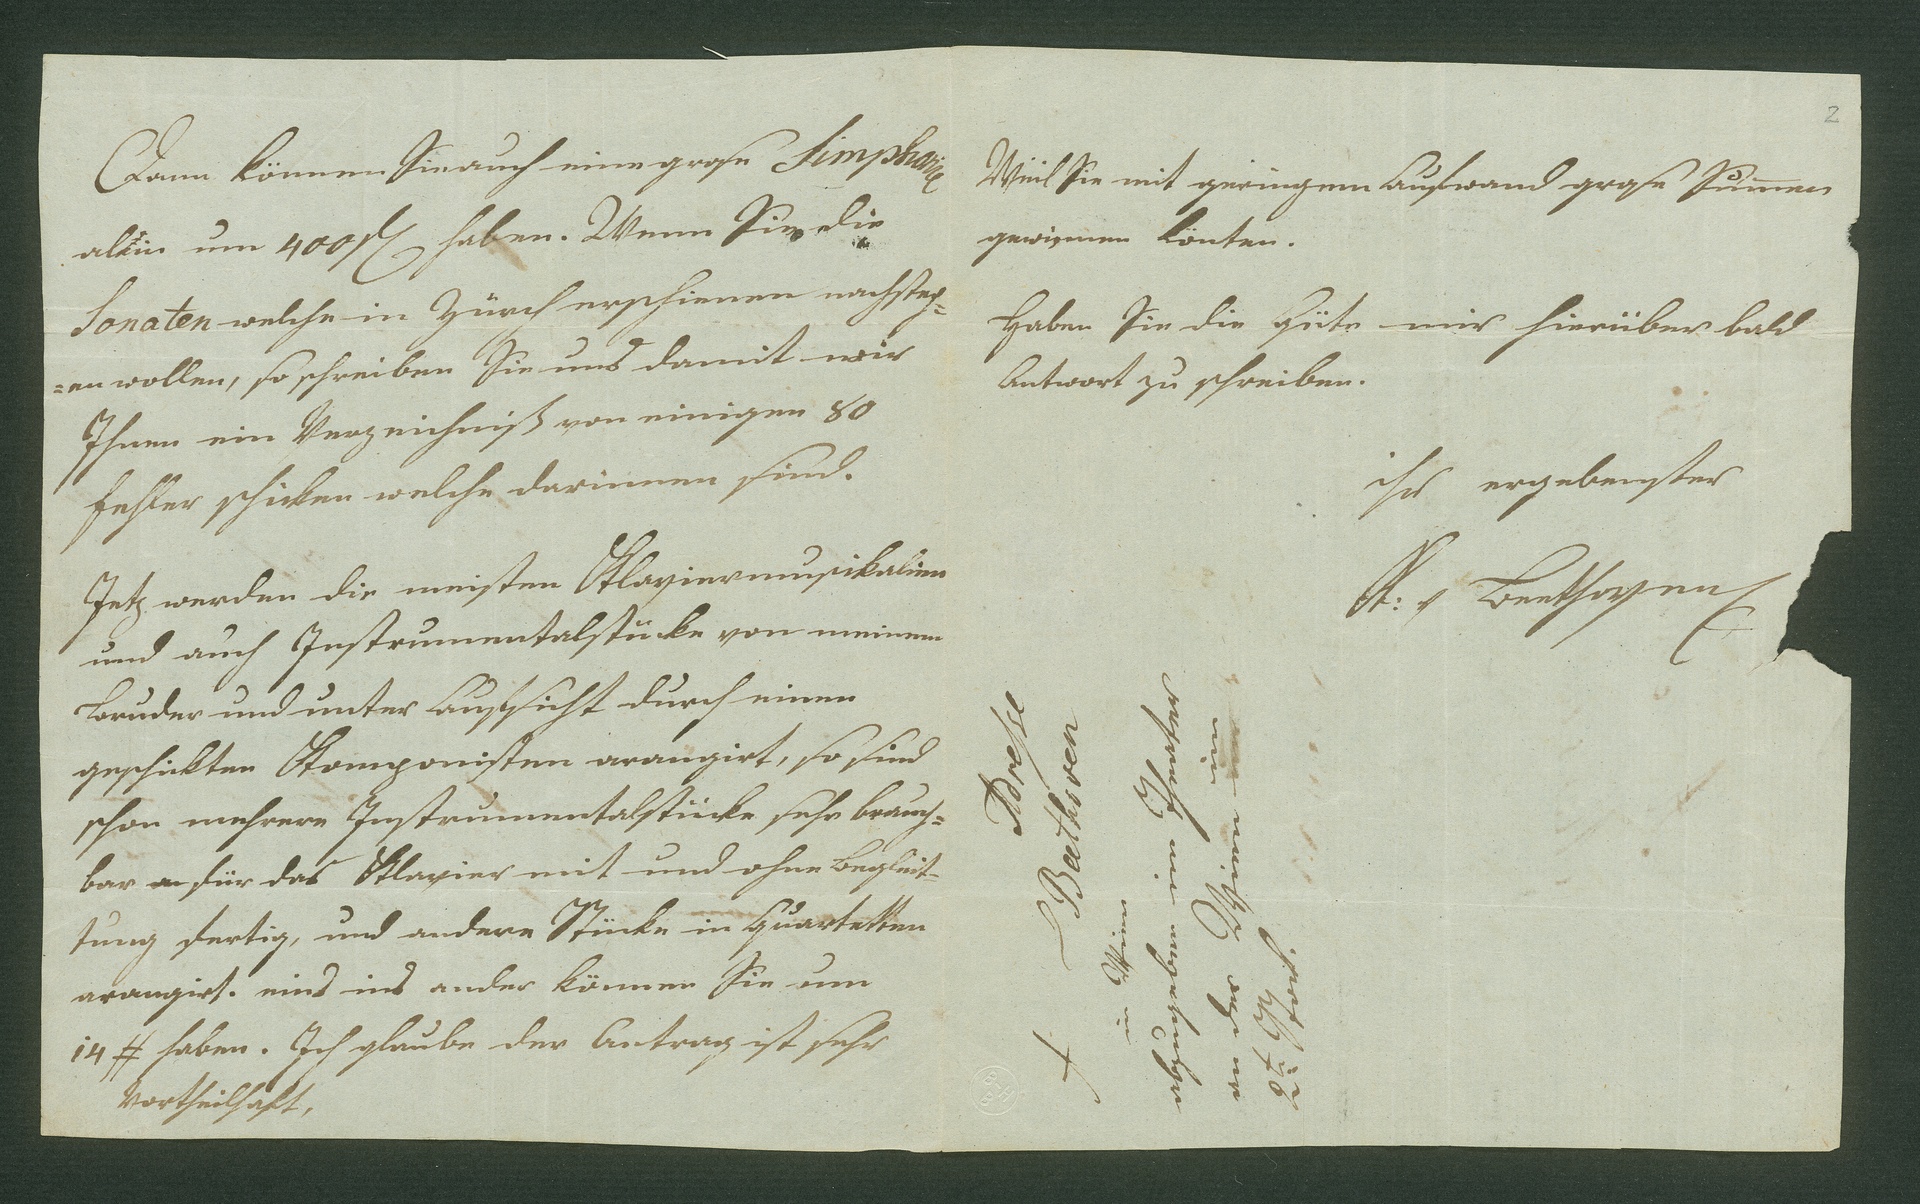 Dann können Sie auch eine grose Simphonie
allein um 400 fl haben. Wenn Sie die
Sonaten welche in Zürch erschienen nachstech=
=en wollen, so schreiben Sie uns damit wir
Ihnen ein Verzeichniß von einigen 80
fehler schicken welche darinnen sind.
Jetz werden die meisten Klaviermusikalien
und auch Instrumentalstücke von meinem
Bruder und unter Aufsicht durch einen
geschickten Komponisten arangirt, so sind
schon mehrere Instrumentalstücke sehr brauch=
bar für das Klavier mit und ohne Begleit=
tung fertig, und andere Stücke in Quartetten
arangirt. eins ins ander können Sie um
14 # haben. Ich glaube der Antrag ist sehr
vortheilhaft,
2
Weil Sie mit geringem Aufwand grose Summen
gewinnen könten.
Haben Sie die Güte mir hierüber bald
Antwort zu schreiben.
ihr ergebenster
K: v Beethoven
Adresse
Beethoven
in Wien
abzugeben im Theater
an der Wien im
2t: Stock.